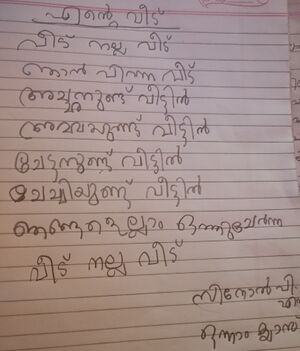 എന്റെ വീട്
വീട് നല്ല വീട്
ഞാൻ പിറന്ന വീട്
അച്ഛനുണ്ട് വീട്ടിൽ
അമ്മയുണ്ട് വീട്ടിൽ
ചേട്ടനുണ്ട് വീട്ടിൽ
ചേച്ചിയുണ്ട് വീട്ടിൽ
ഞങ്ങളെല്ലാം ഒന്നുചേർന്ന
വീട് നല്ല വീട്
സിനോൻ പി
ഒന്നാം ക്ലാസ്